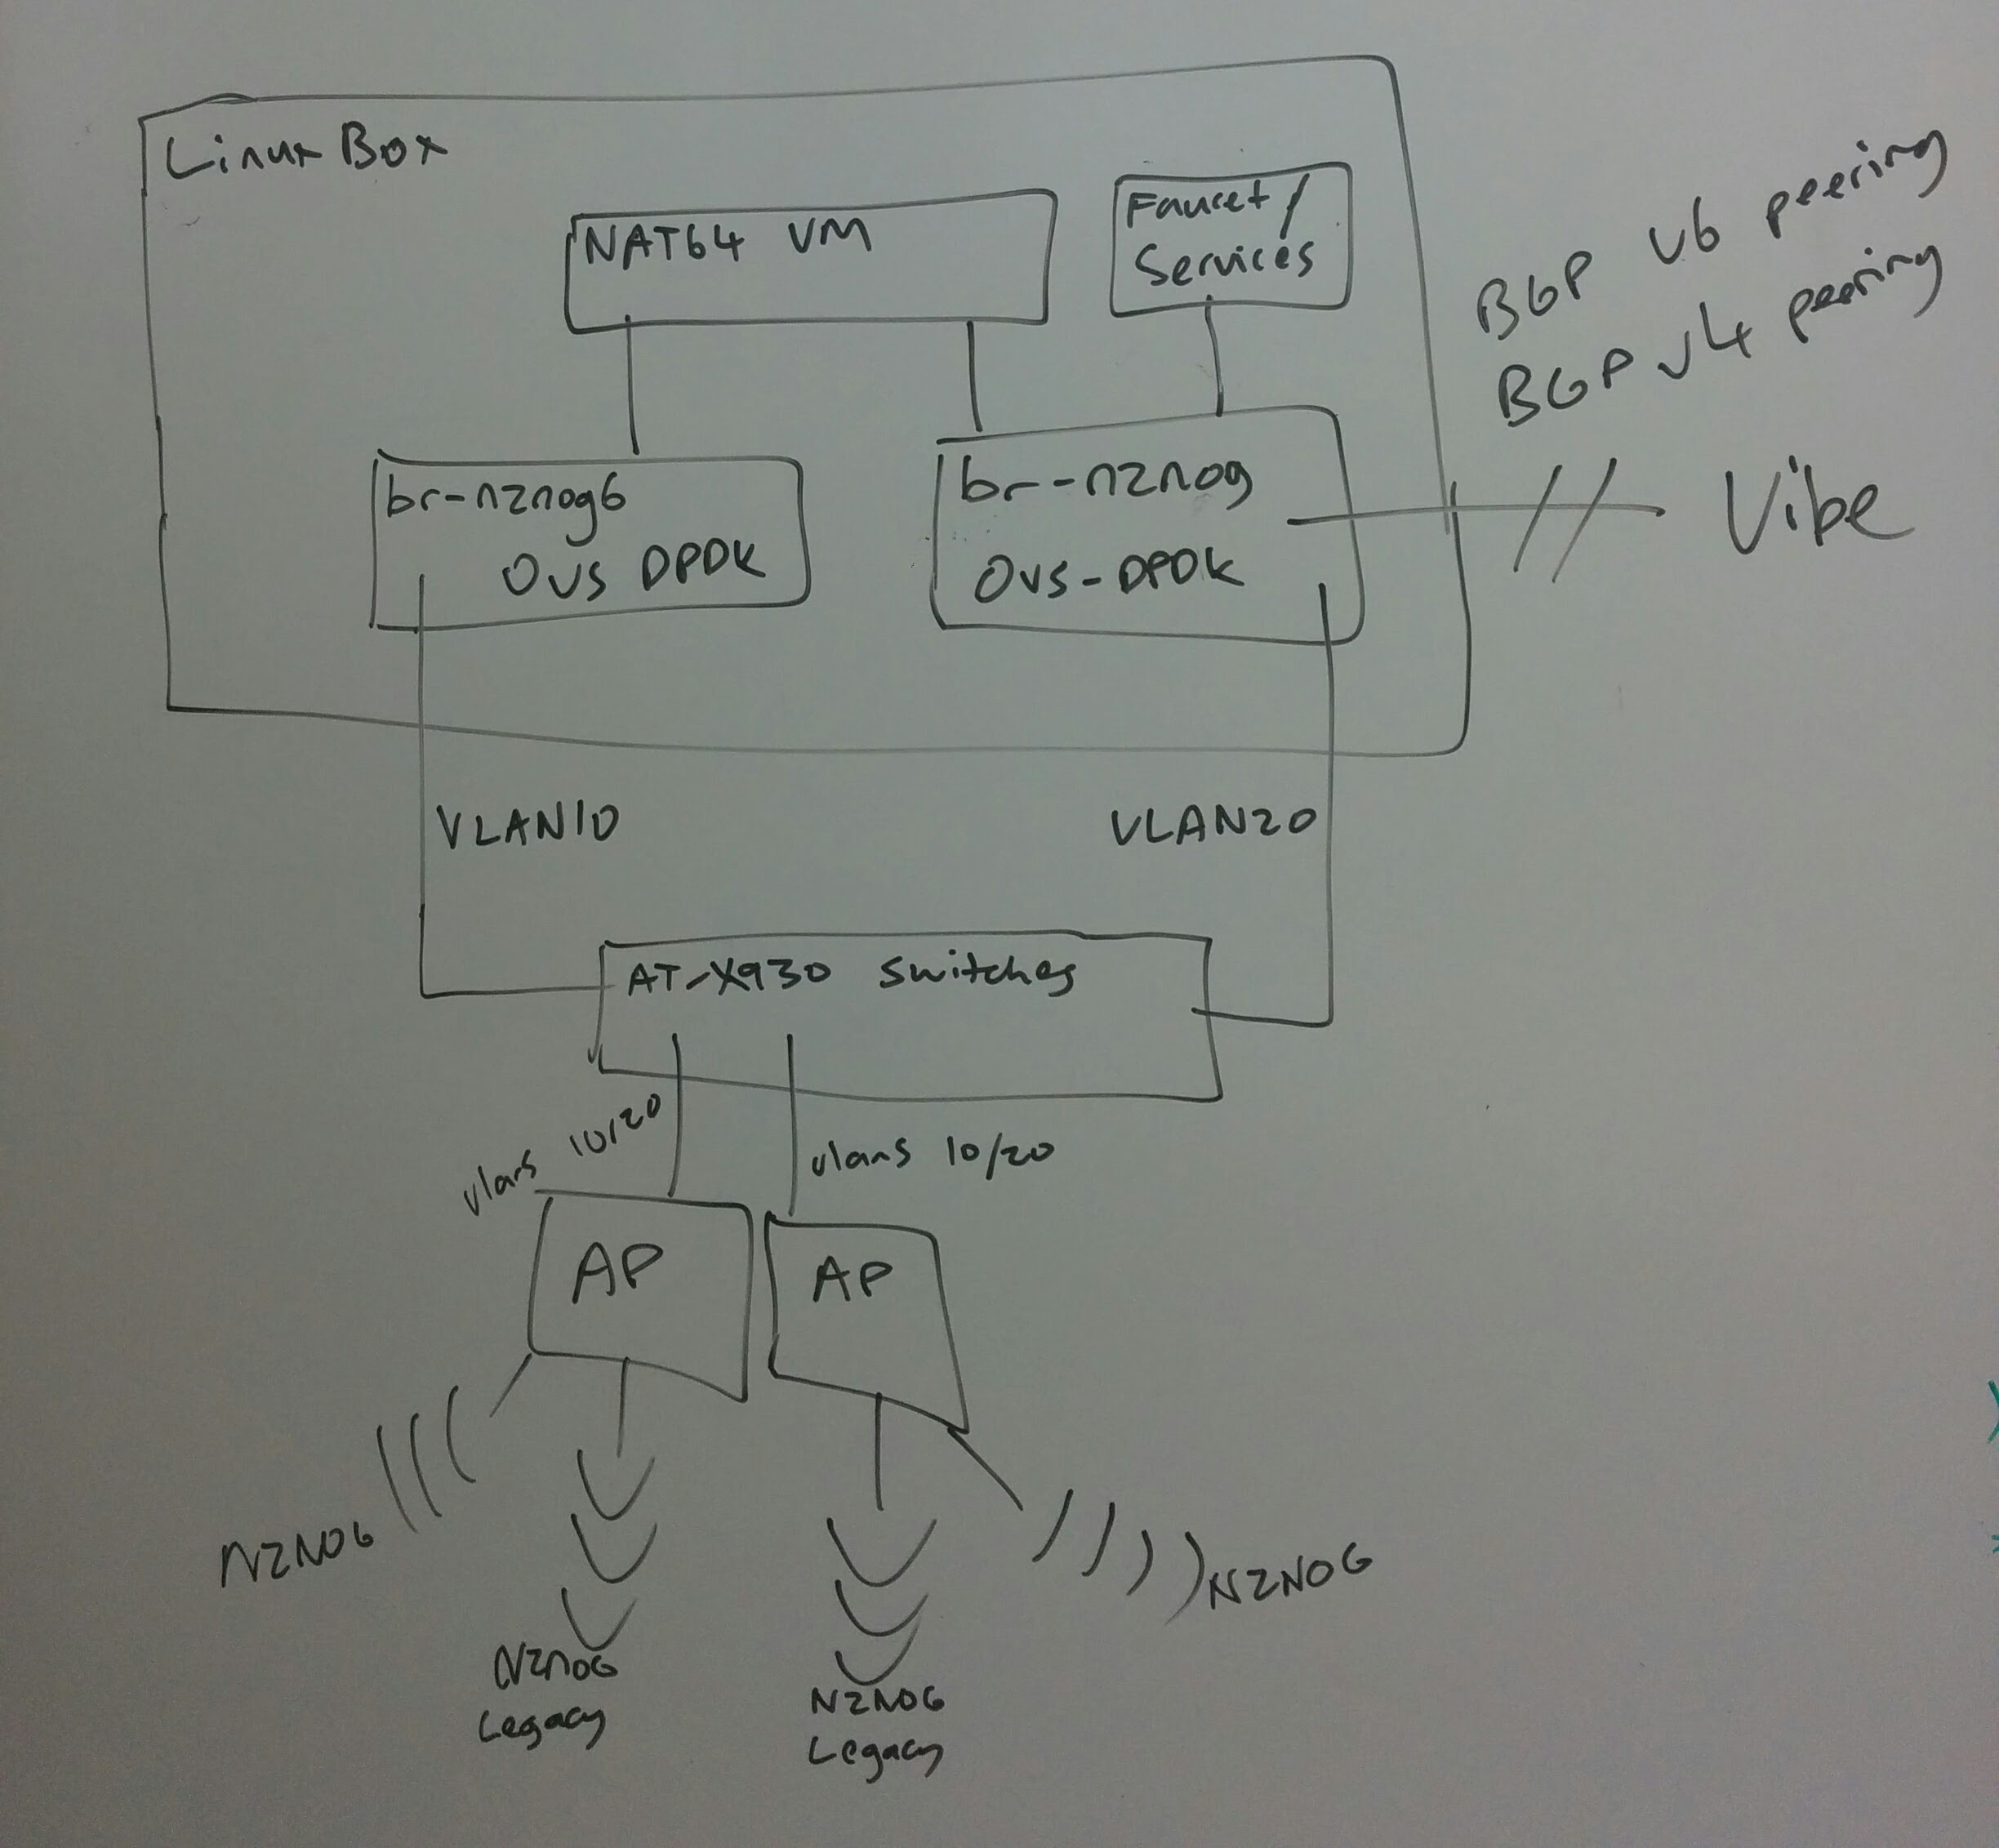 Linux Box
NAT64 VM
Faucet/
Services
BGP v6 peering
BGP v4 peering
br-nznog6
OVS DPDK
br-nznog
OVS-DPDK
Vibe
VLAN10
VLAN20
AT-X930 Switches
vlans 10/20
vlans 10/20
AP
AP
NZNOG
NZNOG
NZNOG
Legacy
NZNOG
Legacy